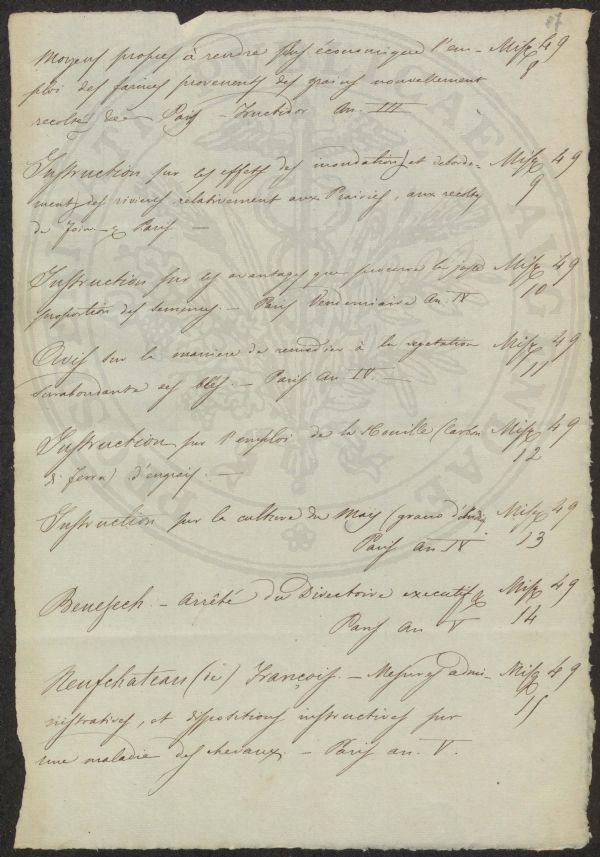 87
Moyens propres à rendre plus économique l'em- Misc 49
ploi des farines provenents des grains nouvellement 8
recoltés Paris - Fructidor An. III
Instruction sur les effets des inondations et deborde- Misc 49
ments des rivieres relativement aux Prairies, aux recoltes 9
de foin &c Paris —
Instruction sur les avantages que procure la juste Misc 49
proportion des semences. — Paris Vendemiaire An IV 10
Avis sur la maniere de remedier à la vegetation Misc 49
surabondante des blés. — Paris An IV. — 11
Instruction sur l'emploi de la Houille (Carbon Misc 49
di Terra) d'engrais. — 12
Instruction sur la culture du Mays (grano d'India Misc 49
Paris An IV 13
Benesech. — Arrêté du Directoire executif & Misc 49
Paris An V 14
Neufchateau (de) François. — Mesures admi- Misc 49
nistratives, et dispositions instructives sur 15
une maladie des chevaux. — Paris an. V.